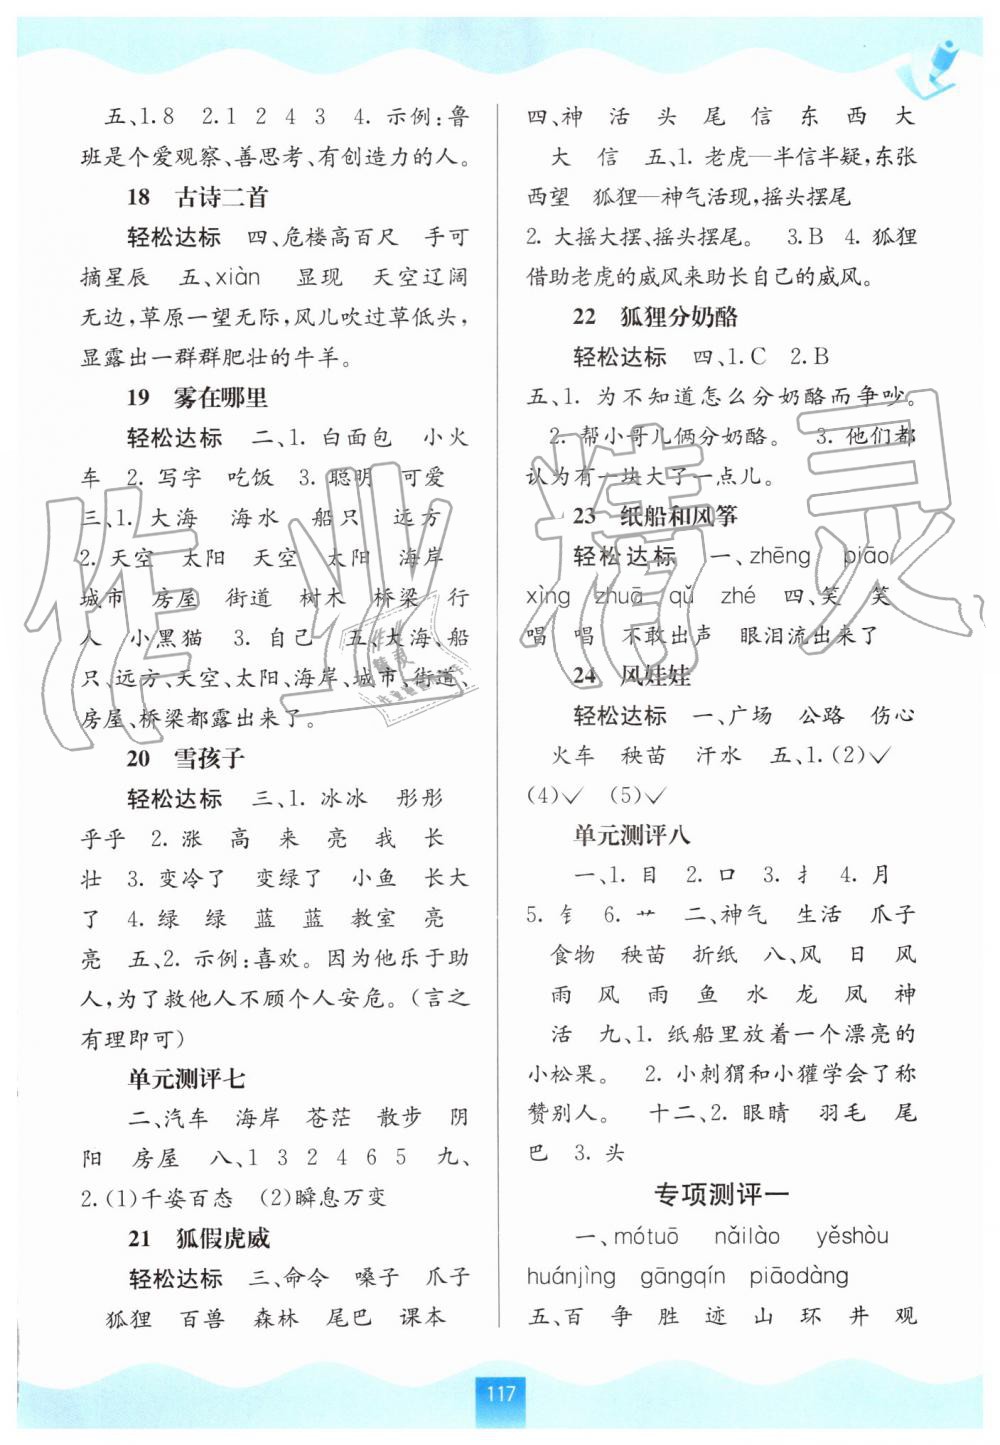 五、1.8 2.1 2 4 3 4. 示例:鲁
班是个爱观察、善思考、有创造力的人。
18 古诗二首
轻松达标 四、危楼高百尺 手可
摘星辰 五、xiàn 显现 天空辽阔
无边,草原一望无际,风儿吹过草低头,
显露出一群群肥壮的牛羊。
19 雾在哪里
轻松达标 二、1. 白面包 小火
车 2. 写字 吃饭 3. 聪明 可爱
三、1. 大海 海水 船只 远方
2. 天空 太阳 天空 太阳 海岸
城市 房屋 街道 树木 桥梁 行
人 小黑猫 3. 自己 五、大海、船
只、远方、天空、太阳、海岸、城市、街道、
房屋、桥梁都露出来了。
20 雪孩子
轻松达标 三、1. 冰冰 彤彤
乎乎 2. 涨 高 来 亮 我 长
壮 3. 变冷了 变绿了 小鱼 长大
了 4. 绿 绿 蓝 蓝 教室 亮
亮 五、2. 示例:喜欢。因为他乐于助
人,为了救他人不顾个人安危。(言之
有理即可)
单元测评七
二、汽车 海岸 苍茫 散步 阴
阳 房屋 八、1 3 2 4 6 5 九、
2.(1)千姿百态 (2)瞬息万变
21 狐假虎威
轻松达标 三、命令 嗓子 爪子
狐狸 百兽 森林 尾巴 课本
四、神 活 头 尾 信 东 西 大
大 信 五、1. 老虎—半信半疑,东张
西望 狐狸—神气活现,摇头摆尾
2. 大摇大摆、摇头摆尾。 3.B 4. 狐狸
借助老虎的威风来助长自己的威风。
22 狐狸分奶酪
轻松达标 四、1.C 2.B
五、1. 为不知道怎么分奶酪而争吵。
2. 帮小哥儿俩分奶酪。 3. 他们都
认为有一块大了一点儿。
23 纸船和风筝
轻松达标 一、zhēng piāo
xìng zhuā qǔ zhé 四、笑 笑
唱 唱 不敢出声 眼泪流出来了
24 风娃娃
轻松达标 一、广场 公路 伤心
火车 秧苗 汗水 五、1.(2)✓
(4)✓ (5)✓
单元测评八
一、1. 目 2. 口 3. 扌 4. 月
5. 钅 6. 艹 二、神气 生活 爪子
食物 秧苗 折纸 八、风 日 风
雨 风 雨 鱼 水 龙 凤 神
活 九、1. 纸船里放着一个漂亮的
小松果。 2. 小刺猬和小獾学会了称
赞别人。 十二、2. 眼睛 羽毛 尾
巴 3. 头
专项测评一
一、mótuō nǎilào yěshòu
huánjìng gāngqín piāodàng
五、百 争 胜 迹 山 环 井 观
117
作业精灵